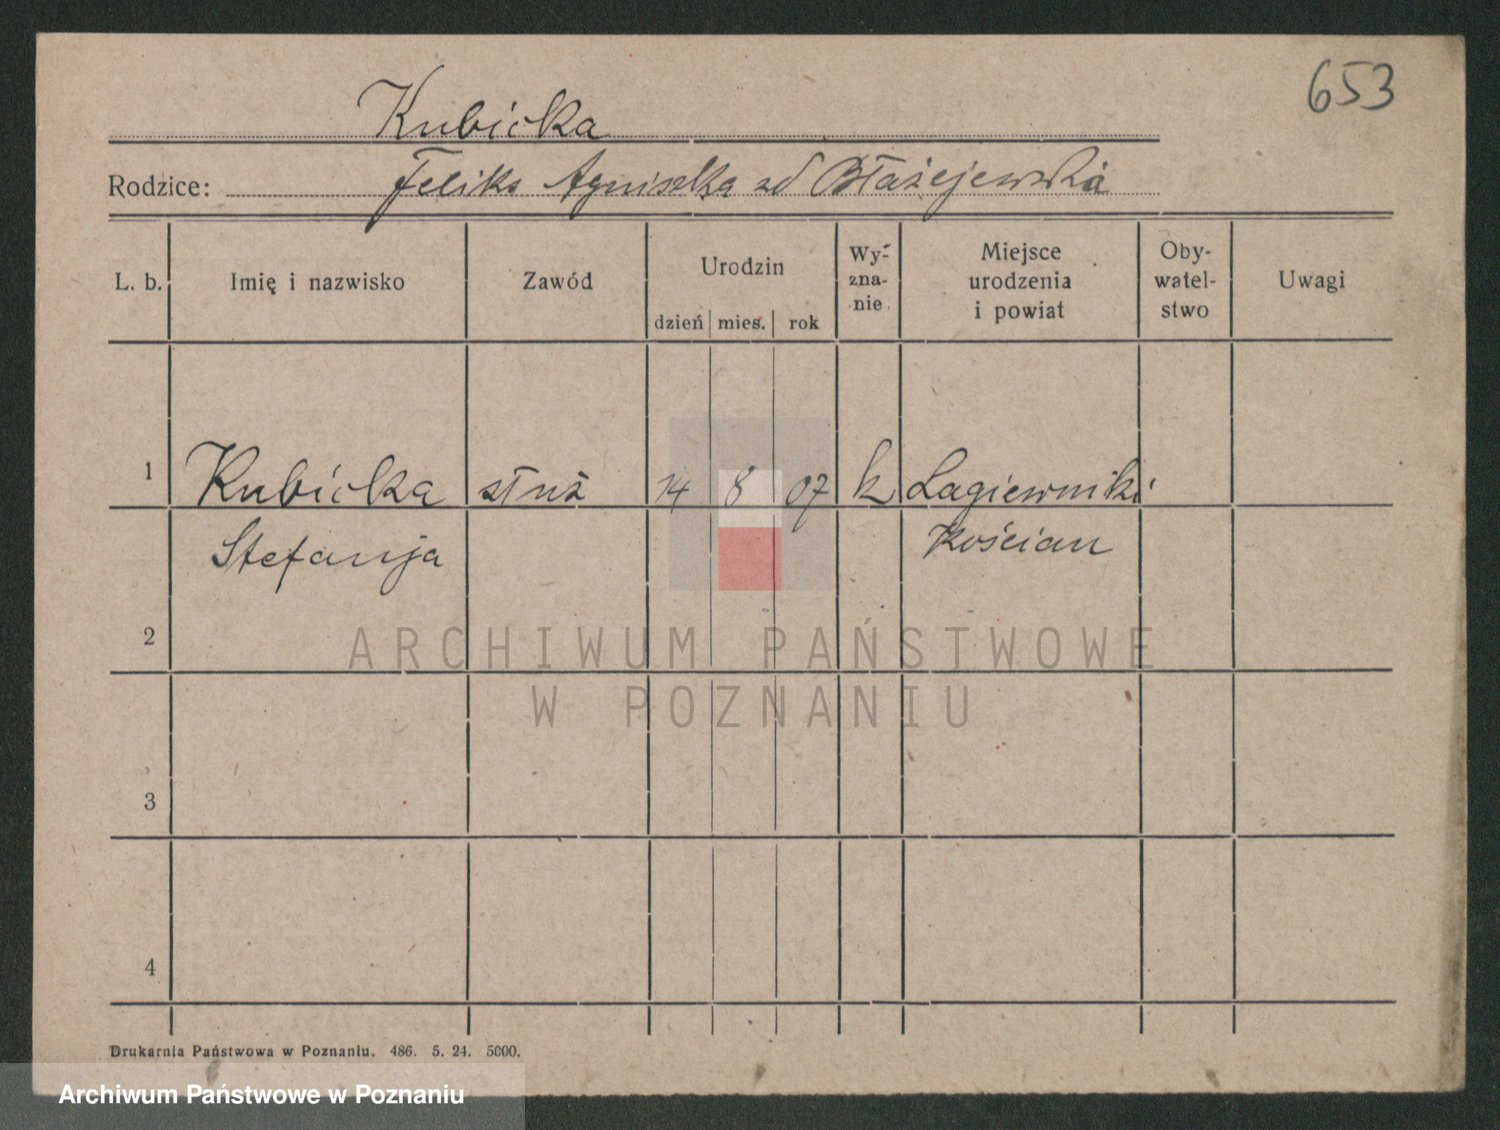 653
Kubicka
Rodzice: Feliks Agnieszka zd Błażejewska
L. b. Imię i nazwisko Zawód Urodzin dzień mies. rok Wy- zna- nie Miejsce urodzenia i powiat Oby- watel- stwo Uwagi
1 Kubicka służ 14 8 07 k Łagiewniki
Stefanja Kościan
2
ARCHIWUM PAŃSTWOWE
W POZNANIU
3
4
Drukarnia Państwowa w Poznaniu. 486. 5. 24. 5000.
Archiwum Państwowe w Poznaniu